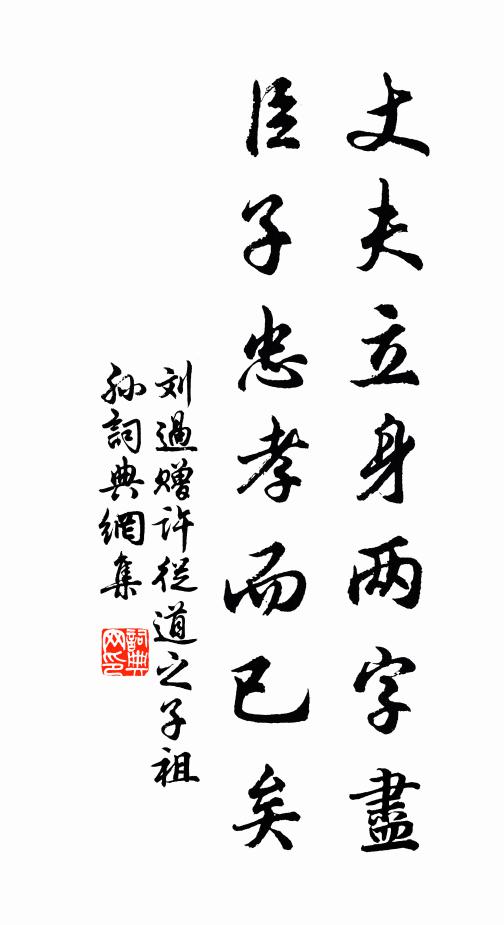 丈夫立身两字盡
臣子忠孝而已矣
刘過赠许從道之子祖
孙詞典網集
詞典网印